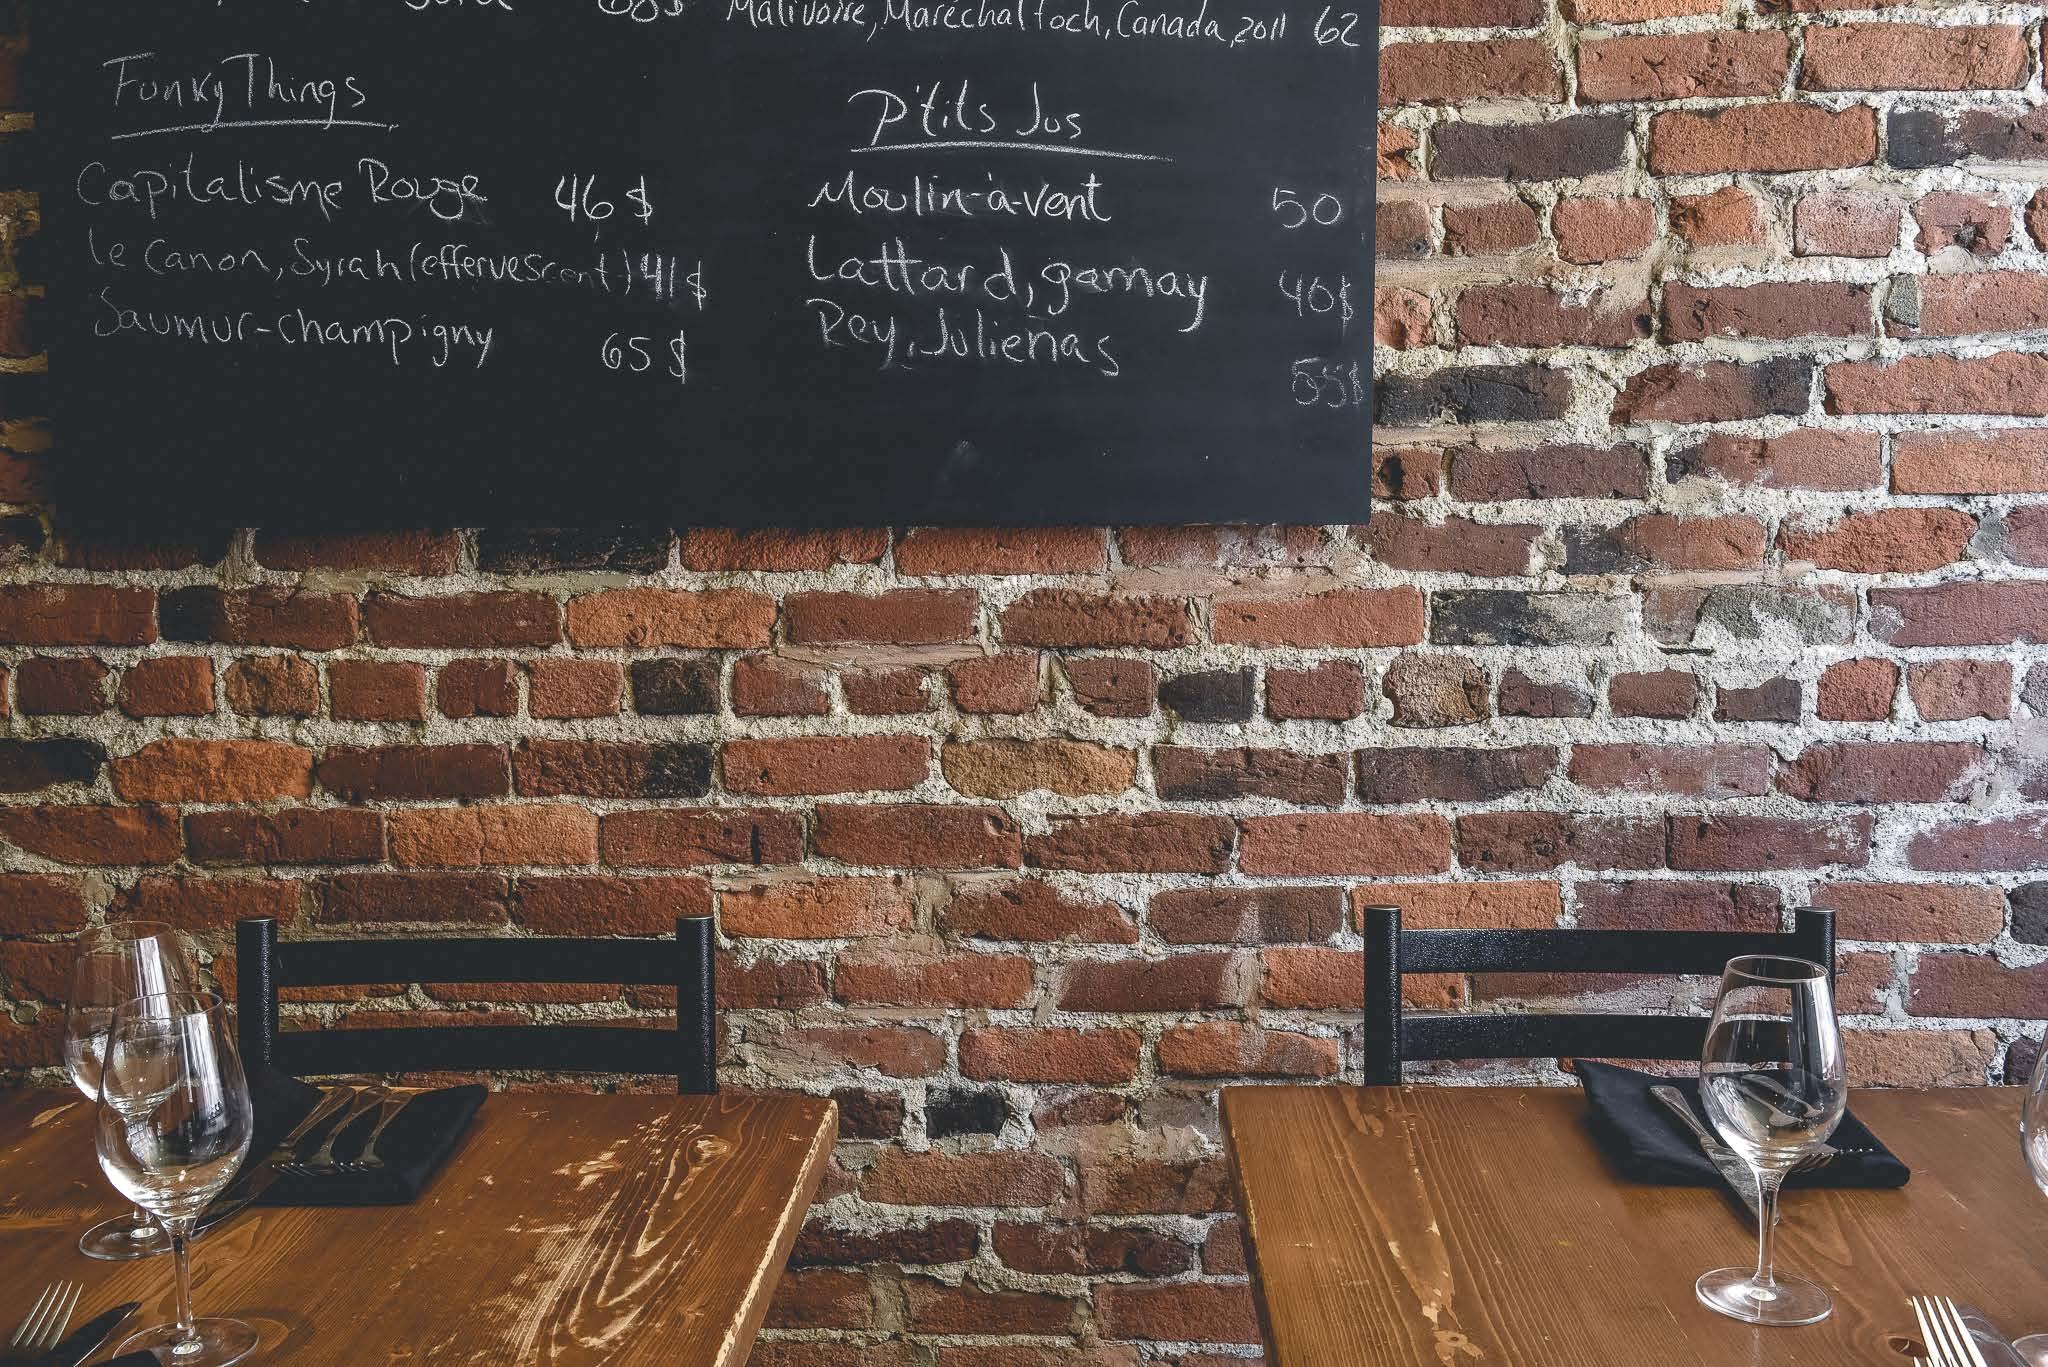 68$
Malivoire, Maréchal Foch, Canada, 2011 62
Funky Things
Capitalisme Rouge 46$
Le Canon, Syrah (effervescent) 41$
Saumur-champigny 65$
P'tits Jus
Moulin-à-vent 50
Lattard, gamay 40$
Rey, Julienas 55$